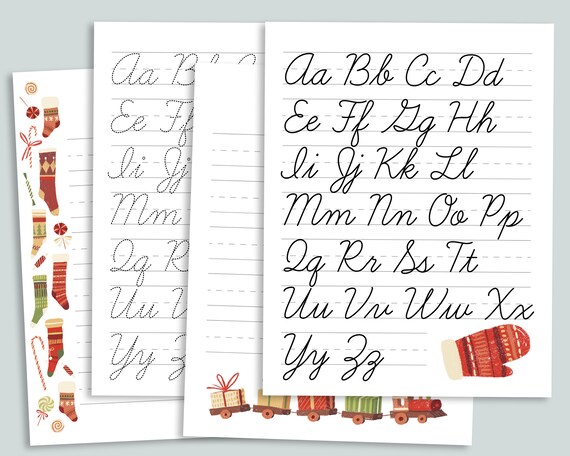 Aa Bb Cc Dd
Ee Ff Gg Hh
Ii Jj Kk Ll
Mm Nn Oo Pp
Qq Rr Ss Tt
Uu Vv Ww Xx
Yy Zz
Aa B
Ee Ff
Ii Jj
Mm
Qq R
Uu V
Yy Z